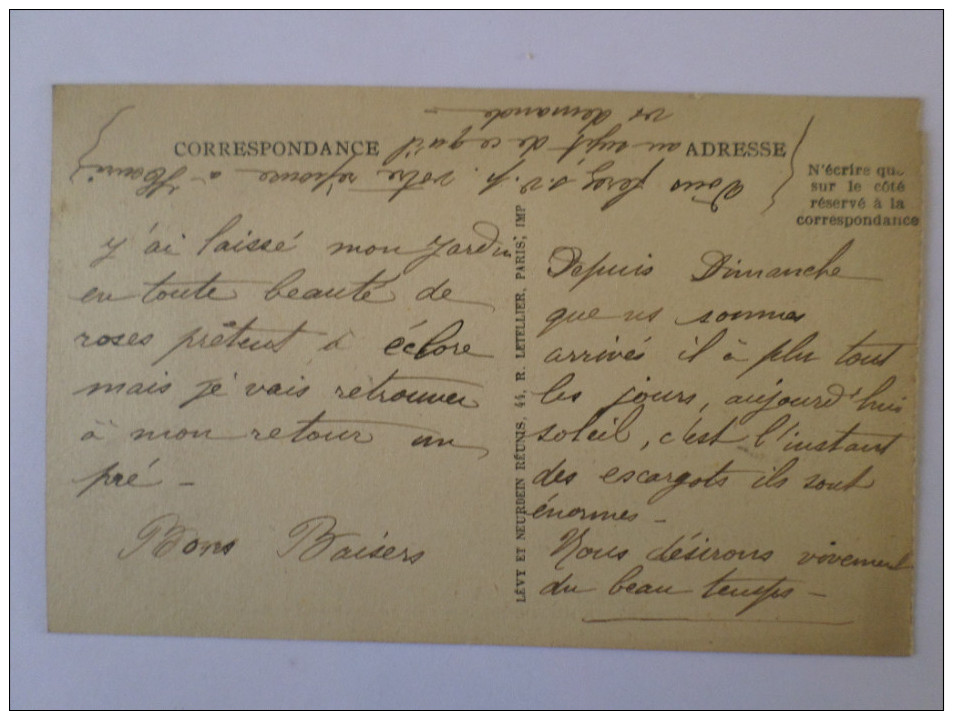 CORRESPONDANCE
ADRESSE
N'écrire que
sur le côté
réservé à la
correspondance
Vous ferez s.v.p. votre réponse à Henri
au sujet de ce qu'il
vs demande —
y'ai laissé mon jardin
en toute beauté de
roses prêtent à éclore
mais je vais retrouver
à mon retour un
pré —
Bons Baisers
LÉVY ET NEURDEIN RÉUNIS, 44, R. LETELLIER, PARIS, IMP
Depuis Dimanche
que ns sommes
arrivés il à plu tout
les jours, aujourd'hui
soleil, c'est l'instant
des escargots ils sont
énormes —
Nous désirons vivement
du beau temps —